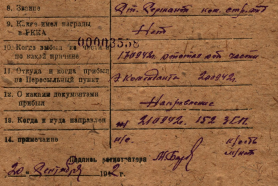 8. Звание Ст. Сержант ком. отд.
9. Какие имел награды в РККА Нет
00003558
10. Когда выбыл из части и по какой причине 170942 отстал от части
11. Откуда и когда прибыл на Пересыльный пункт Коменданта 200942
12. С какими документами прибыл Направление
13. Когда и куда направлен 210942 152 ЗСП
14. примечание н/с
Подпись регистратора
20 Сентября 1942 г.